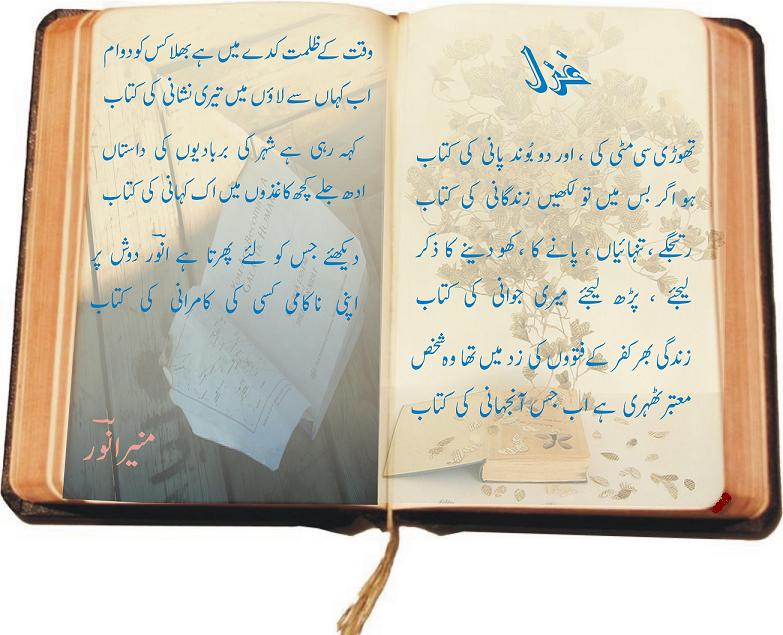 غزل
تھوڑی سی مٹی کی ، اور دو بُوند پانی کی کتاب
ہو اگر بس میں تو لکھیں زندگانی کی کتاب
رتجگے ، تنہائیاں ، پانے کا ، کھو دینے کا ذکر
لیجئے ، پڑھ لیجئے میری جوانی کی کتاب
زندگی بھر کفر کے فتووں کی زد میں تھا وہ شخص
معتبر ٹھہری ہے اب جس آنجہانی کی کتاب
وقت کے ظلمت کدے میں ہے بھلا کس کو دوام
اب کہاں سے لاؤں میں تیری نشانی کی کتاب
کہہ رہی ہے شہر کی بربادیوں کی داستاں
ادھ جلے کچھ کاغذوں میں اک کہانی کی کتاب
دیکھئے جس کو لئے پھرتا ہے انورؔ دوش پر
اپنی ناکامی کسی کی کامرانی کی کتاب
منیر انورؔ